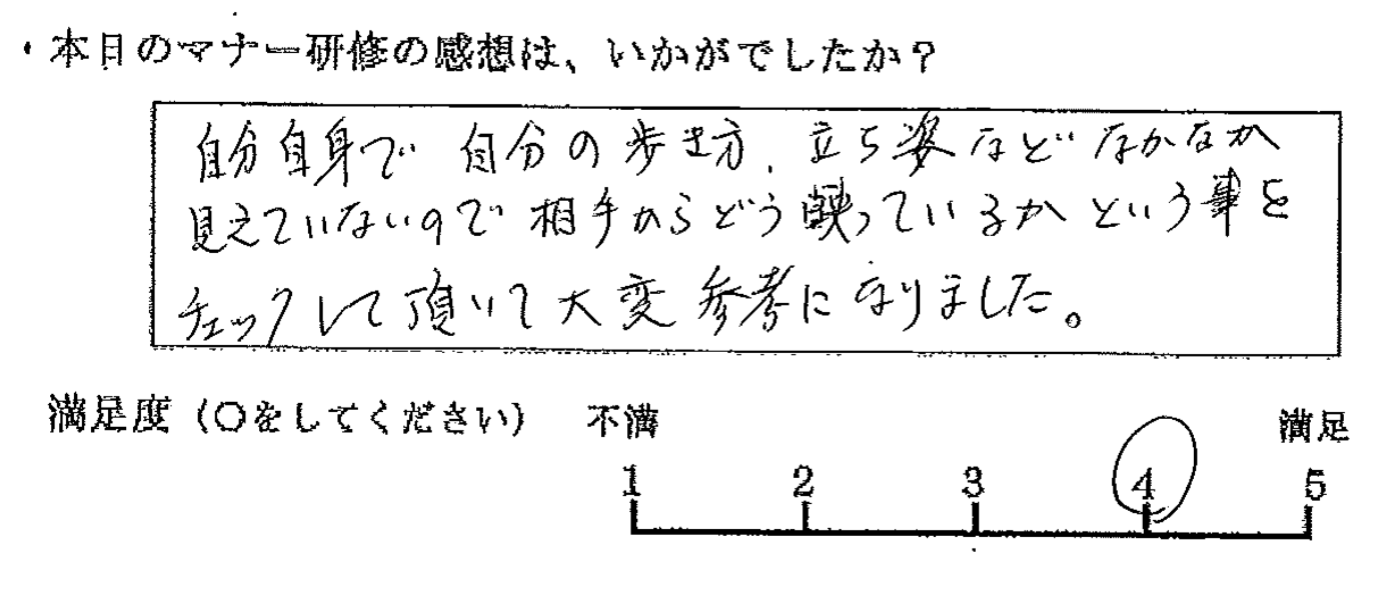 ・本日のマナー研修の感想は、いかがでしたか？
自分自身で自分の歩き方、立ち姿などなかなか
見えていないので相手からどう映っているかという事を
チェックして頂いて大変参考になりました。
満足度（○をしてください） 不満 満足
1 2 3 4 5